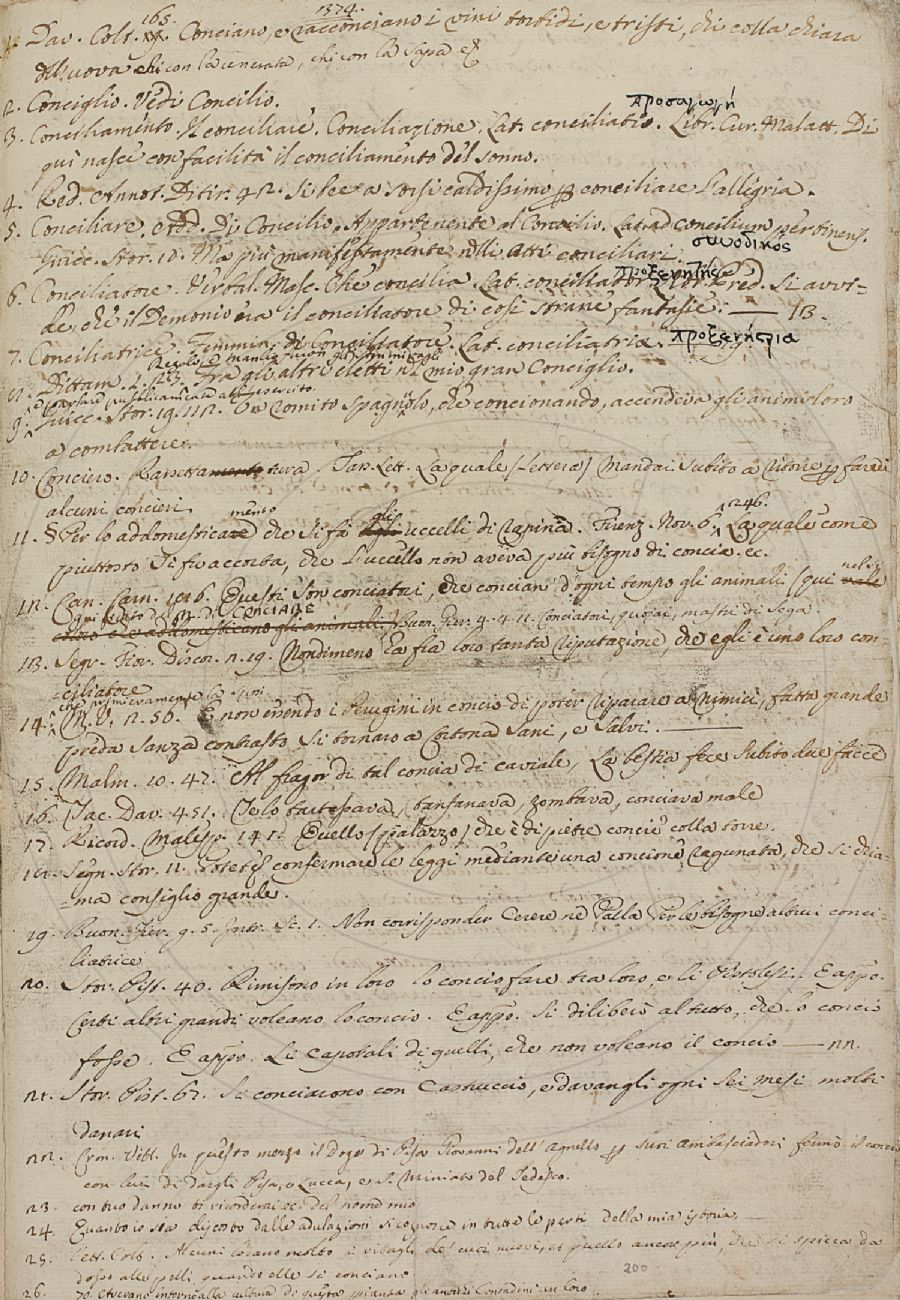 165. 1574.
1. Dav. Colt. Conciano, e racconciano i vini torbidi, e tristi, chi colla chiara
dell'uova chi con la cenerata, chi con la sapa &
2. Conciglio. Vedi Concilio.
προσαγωγή
3. Conciliamento. Il conciliare. Conciliazione. Lat. conciliatio. Libr. Cur. Malatt. Di
qui nasce con facilità il conciliamento del sonno.
4. Red. Annot. Ditir. 42. Si bee a sorsi caldissimo conciliare l'allegria.
5. Conciliare. Add. Di Concilio. Appartenente al Concilio. Lat. ad concilium pertinens.
συνοδικός
Guicc. Stor. 10. Ma più manifestamente nelli atti conciliari.
προξενητής
6. Conciliatore. Verbal. Masc. Che concilia. Lat. conciliator. Cred. Si avvi-
de, che il Demonio era il conciliatore di così strane fantasie: — 13.
προξενήτρια
7. Conciliatrice. Femmin. di Conciliatore. Lat. conciliatria. — 19.
8. Dittam. 2. 23. Fra gli altri eletti nel mio gran Conciglio.
e parlare pubblicamente all'esercito.
9. Guicc. Stor. 19. 112. Un romito spagnuolo, che concionando, accendeva gli animi loro
a combattere.
10. Conciero. Rassettatura. Tan. Lett. La quale [lettera] mandai subito a farvi
alcuni concieri.
mento gli 246.
11. § Per lo addomesticare che si fa uccelli di rapina. Firenz. Nov. 6. La quale come
piuttosto si fu accorta, che l'uccello non aveva più bisogno di concia. ec.
12. Can. Carn. 106. Questi son conciatori, che concian d'ogni tempo gli animali [qui nel
CONCIARE
coloro che addomesticano gli animali] Buon. Fier. 4. 4. 11. Conciatori, quoiai, mastri di sega.
13. Segr. Fior. Discor. 2. 19. Nondimeno fia loro tanta riputazione, che egli è uno loro con-
ciliatore
14. M. V. 2. 56. E non essendo i Perugini in concio di poter riparare a' nimici, fatta grande
preda sanza contrasto si tornaro a Cortona sani, e salvi. —
15. Malm. 10. 42. Al fragor di tal concia di caviale, La bestia fece subito due facce
16. Tac. Dav. 451. Tansanava, zombava, conciava male
17. Ricord. Malesp. 141. Quello [palazzo] che è di pietre concie colla torre.
18. Segn. Stor. 11. Potete confermare le leggi mediante una concione ragunata, che si chia-
-ma consiglio grande.
19. Buon. Fier. 9. 5. Intr. Sc. 1. Non corrisponder Cerere nè Palla Per le bisogne altrui conci-
liatrice
20. Stor. Pist. 40. Rimisono in loro lo concio fare tra loro, e li Pistolesi. E appo.
Certi altri grandi voleano lo concio. E appo. Si diliberò al tutto, che lo concio
fosse. E appo. Li caporali di quelli, che non voleano il concio — 22.
21. Stor. Pist. 67. Si conciarono con Castruccio, e davangli ogni sei mesi molti
danari
22. Cron. Vell. In questo mezzo il doge di Pisa Giovanni dell'Agnello suoi ambasciadori fermò il concio
con lui di dargli Pisa, e Lucca, e S. Miniato del Tedesco.
23. con tuo danno ti ricorderai ec. del nome mio
24. Quanto io sia discosto dalle adulazioni si cognosce in tutte le parti della mia istoria. —
25. Alcuni lodano molto i ritagli de' cuoi nuovi, et quello ancor più, che si spicca da
dosso alle pelli, quando elle si conciano
200
26. intorno alla cultura di questa pianta gli antichi Contadini in loro